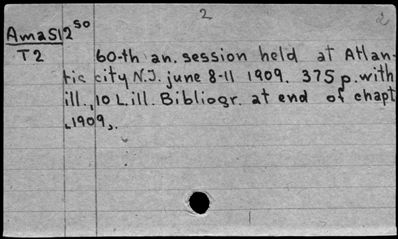 2 2
AmaS12⁵⁰
T2 60-th an. session held at Atlan-
tic city N.J. june 8-11 1909. 375 p. with
ill., 10 L. ill. Bibliogr. at end of chapt
1909.